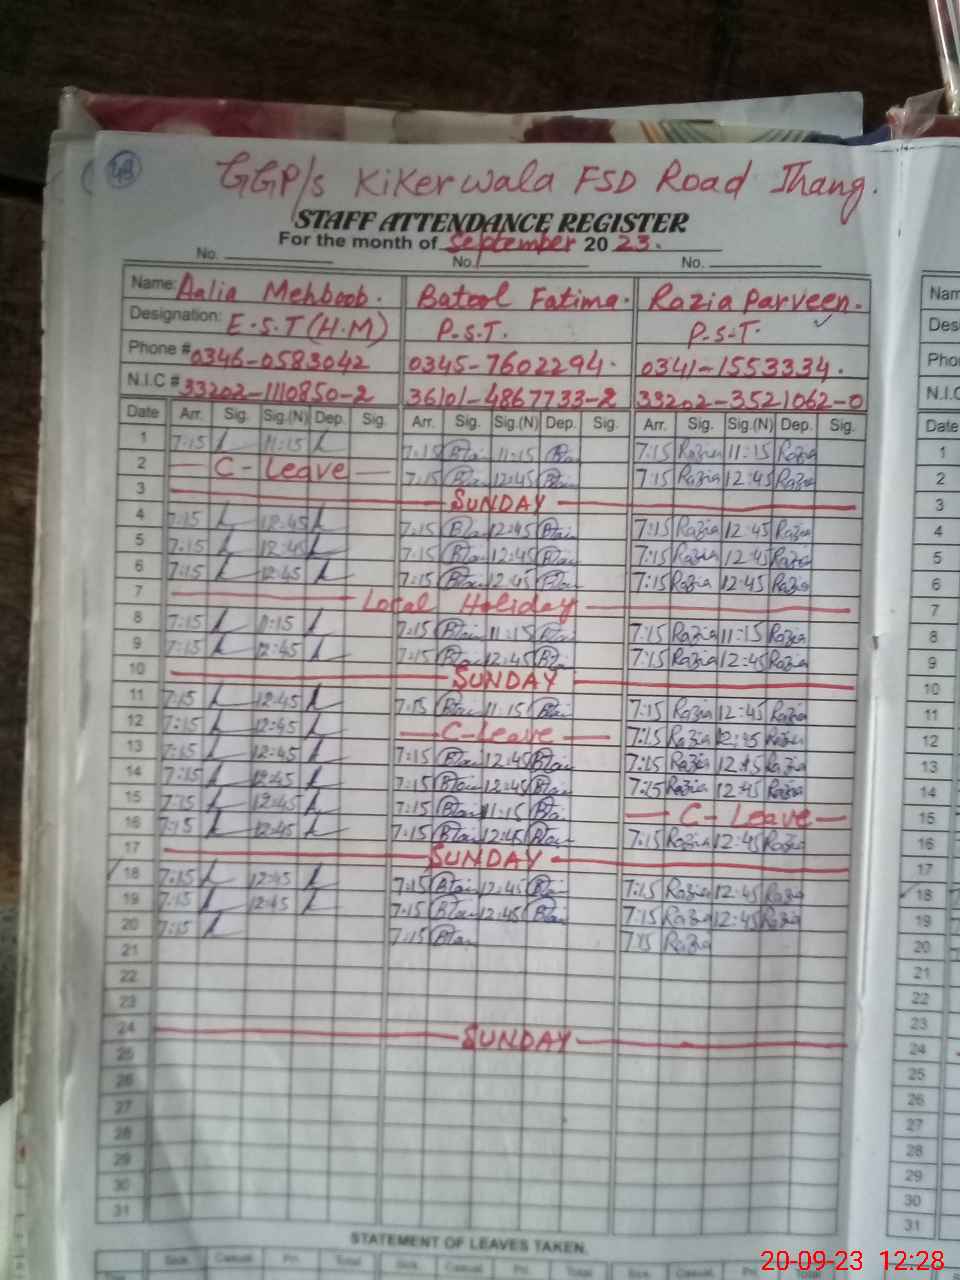 48
GGP/s Kikerwala FSD Road Jhang.
STAFF ATTENDANCE REGISTER
For the month of September 20 23.
No. No. No.
Name: Aalia Mehboob. Batool Fatima. Razia Parveen.
Designation: E.S.T (H.M) P.S.T. P.S.T.
Phone # 0346-0583042 0345-7602294. 0341-1553334.
N.I.C # 33202-1110850-2 36101-4867733-2 33202-3521062-0
Date Arr. Sig. Sig.(N) Dep. Sig. Arr. Sig. Sig.(N) Dep. Sig. Arr. Sig. Sig.(N) Dep. Sig.
1 7:15 11:15 7:15 11:15 7:15 Razia 11:15 Razia
2 C-Leave 7:15 12:45 7:15 Razia 12:45 Razia
3 SUNDAY
4 7:15 12:45 7:15 12:45 7:15 Razia 12:45 Razia
5 7:15 12:45 7:15 12:45 7:15 Razia 12:45 Razia
6 7:15 12:45 7:15 12:45 7:15 Razia 12:45 Razia
7 Local Holiday
8 7:15 11:15 7:15 11:15 7:15 Razia 11:15 Razia
9 7:15 12:45 7:15 12:45 7:15 Razia 12:45 Razia
10 SUNDAY
11 7:15 12:45 7:15 11:15 7:15 Razia 12:45 Razia
12 7:15 12:45 C-Leave 7:15 Razia 12:45 Razia
13 7:15 12:45 7:15 12:45 7:15 Razia 12:45 Razia
14 7:15 12:45 7:15 12:45 7:15 Razia 12:45 Razia
15 7:15 12:45 7:15 11:15 C-Leave
16 7:15 12:45 7:15 12:45 7:15 Razia 12:45 Razia
17 SUNDAY
18 7:15 12:45 7:15 12:45 7:15 Razia 12:45 Razia
19 7:15 12:45 7:15 12:45 7:15 Razia 12:45 Razia
20 7:15 7:15 7:15 Razia
21
22
23
24 SUNDAY
25
26
27
28
29
30
31
STATEMENT OF LEAVES TAKEN.
Sick. Casual. Pri. Total Sick. Casual. Pri. Total Sick. Casual. Pri. Total
Nam
Des
Pho
N.I.C
Date
1
2
3
4
5
6
7
8
9
10
11
12
13
14
15
16
17
18
19
20
21
22
23
24
25
26
27
28
29
30
31
20-09-23 12:28